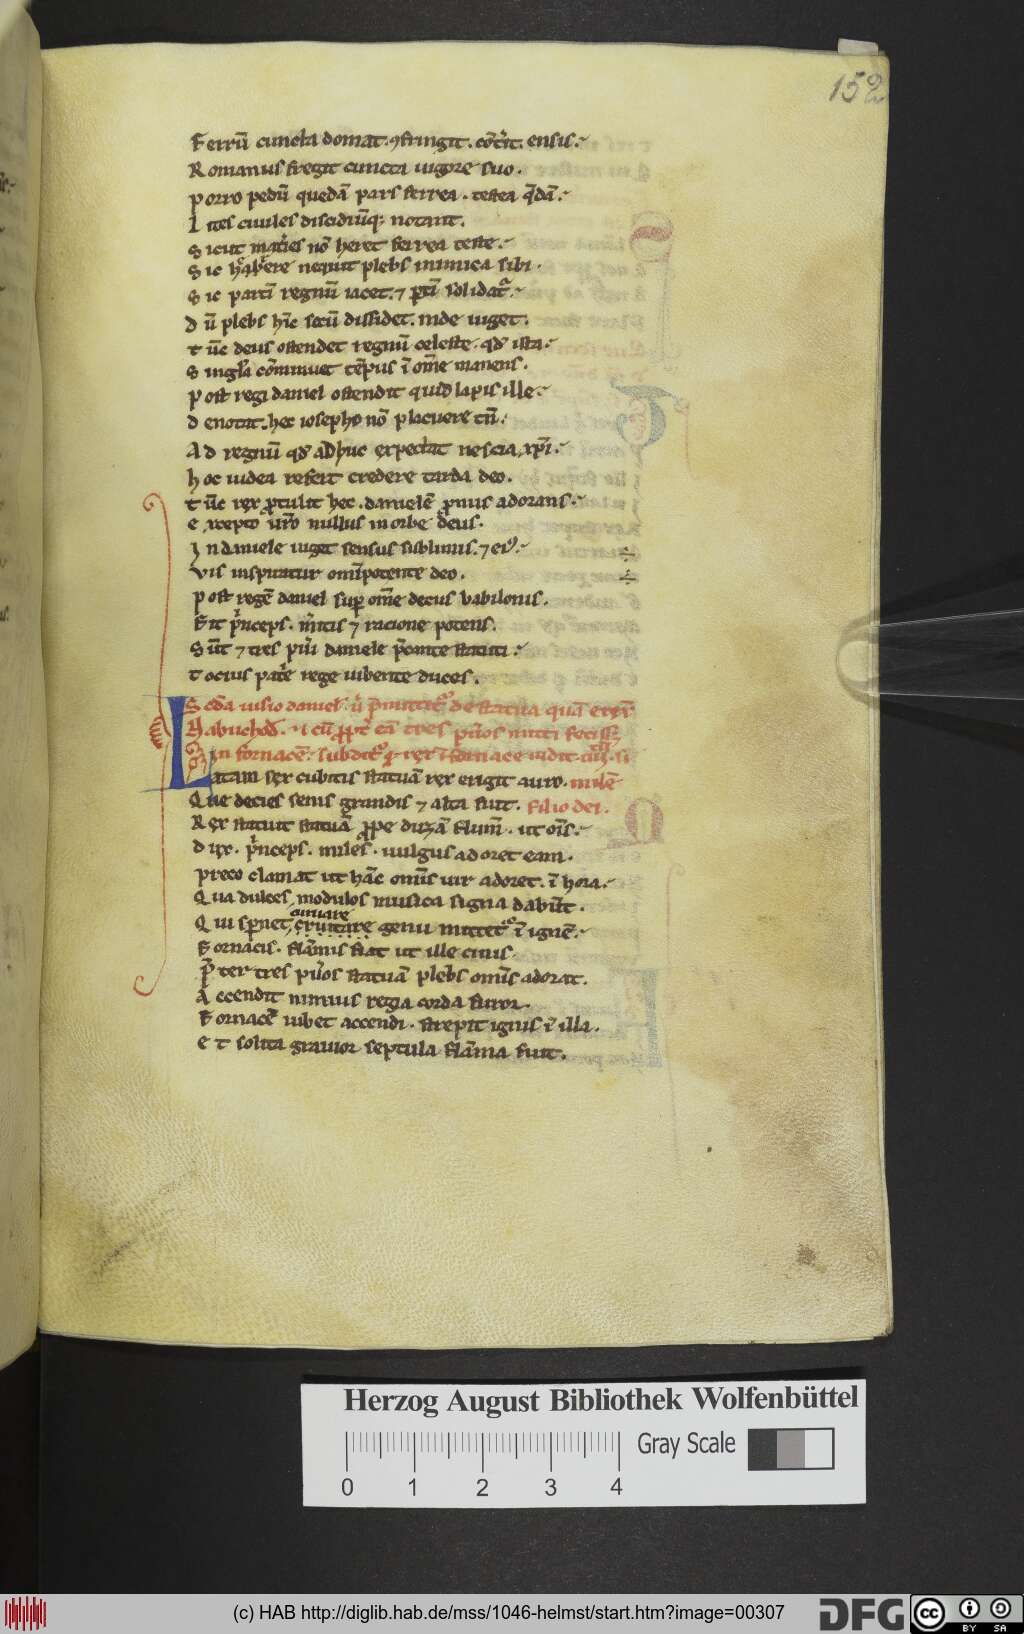 152
Ferrū cuncta domat. ꝯfringit. cōt͛it. ensis.
Romanus fregit cuncta uigore suo.
Porro pedū quedā pars ferrea. testea q̄dā.
Ites ciuiles discidiūq; notant.
Sicut mat͛ies nō heret ferrea teste.
Sic herere nequit plebs inimica sibi.
Sic partī regnū iacet. ⁊ ꝑtī solidat᷑.
Dū plebs hīc secū dissidet. inde uiget.
Tūc deus ostendet regnū celeste. qd̓ ista.
Singla cōminuet tēpus ī ōme manens.
Post regi daniel ostendit quid lapis ille.
Denotat. hec iosepho nō placuere tn̄.
Ad regnū qd̓ adhuc expectat nescia xp̄i.
Hoc iudea refert credere tarda deo.
Tūc rex ꝓtulit hec. danielē pronus adorans.
Excepto ur̄o nullus in orbe deus.
In daniele uiget sensus sublimis. ⁊ ei᷒.
Vis inspiratur omīpotente deo.
Post regē daniel suꝑ ōme decus babilonis.
Fit p̓nceps. m̓itis ⁊ racione potens.
Sūt ⁊ tres pu͛i daniele p̄cante statuti.
Tocius pat͛e rege iubente duces.
Scd̄a uisio daniel. ū p̄mittit᷒ de statua quā erex̄
Nabuchod̄. ⁊ cū ꝓpt͛ eā tres pu͛os mitti fecis;
in fornacē. subdit᷒ q̓ rex ī fornace uidit
Latam sex cubitis statuā rex erigit auro. milē
Que decies senis grandis ⁊ alta fuit. filio dei.
Rex statuit statuā ꝓpe duzā flum̄. ut oīs.
Dux. p̓nceps. miles. uulgus adoret eam.
Preco clamat ut hāc omīs uir adoret. ī hora.
Qua dulces modulos musica signa dabūt.
Qui spernet genu mittet᷒ ī ignē.
Fornacis. flāmis fiat ut ille cinis.
P̄ter tres pu͛os statuā plebs omīs adorat.
Accendit nimius regia corda furor.
Fornacē iubet accendi. strepit ignis ī illa.
Et solita grauior septula flāma fuit.
Herzog August Bibliothek Wolfenbüttel
Gray Scale
0 1 2 3 4
(c) HAB http://diglib.hab.de/mss/1046-helmst/start.htm?image=00307
DFG
cc BY SA